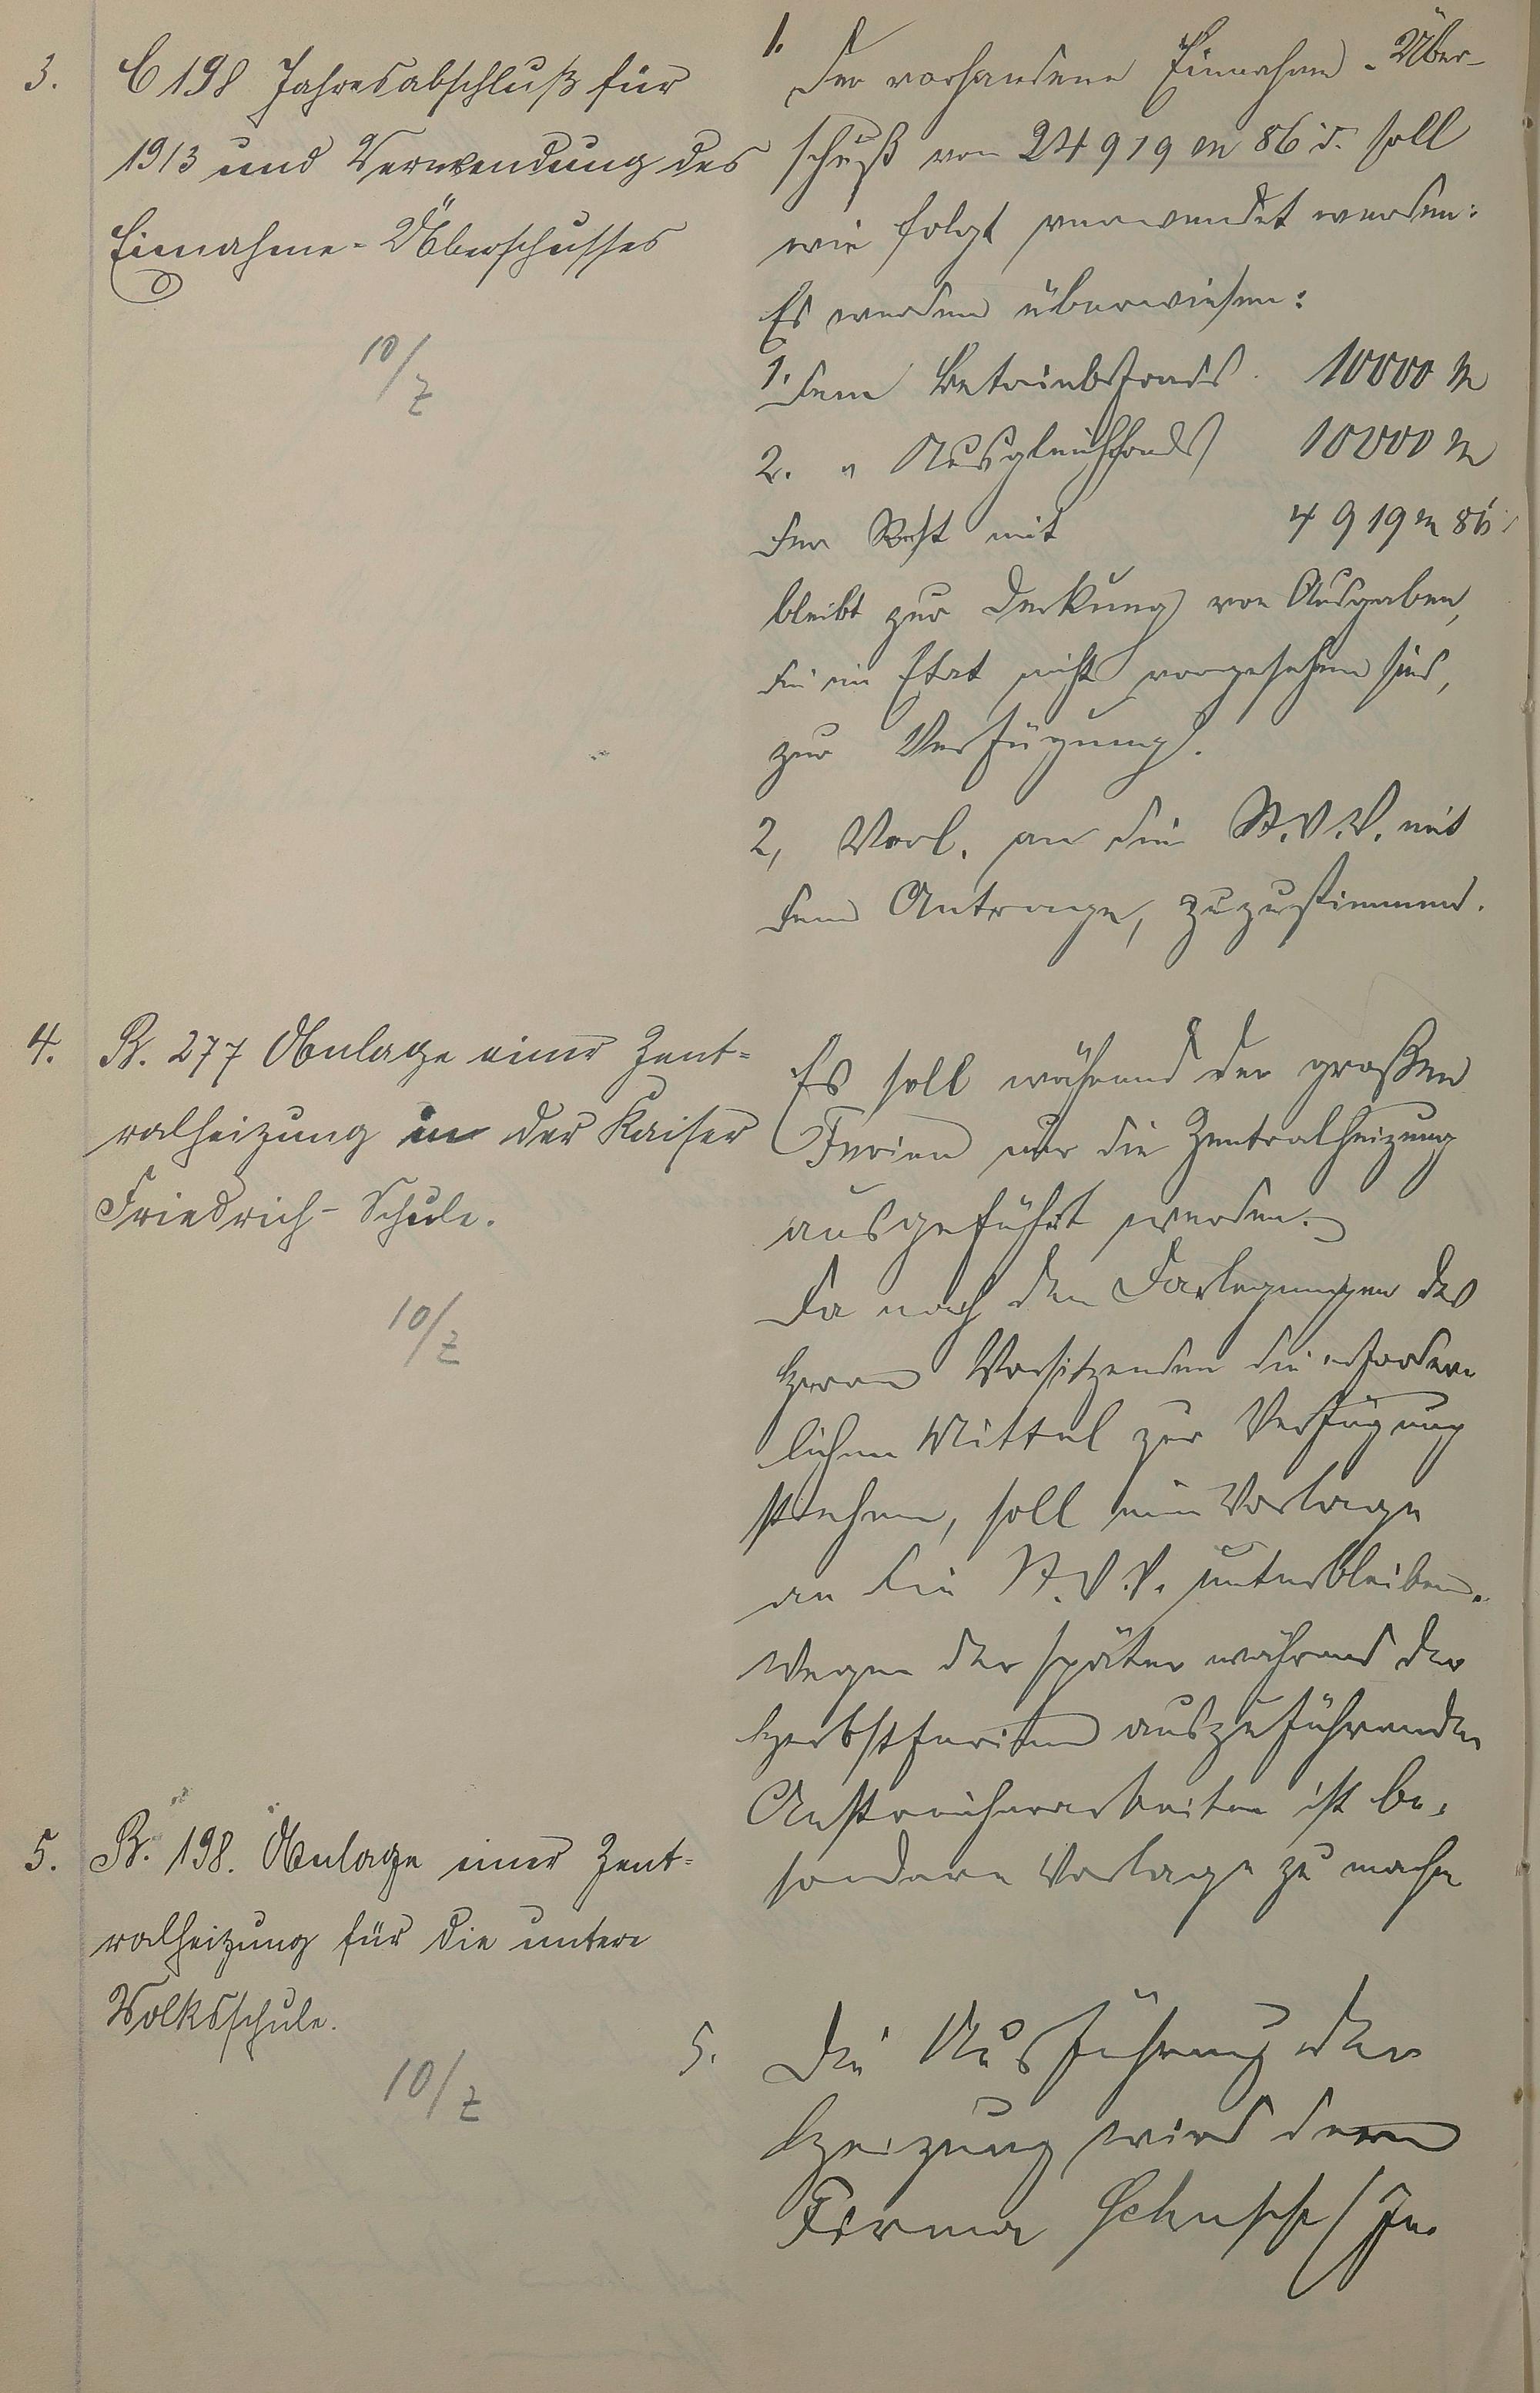 3.
C 198 Jahresabschluß für
1913 und Verwendung des
Einnahme-Überschusses
10/Z
1.
Der vorhandene Einnahme-Über-
schuß von 24 919 M 86 d. soll
wie folgt verwendet werden:
Es werden überwiesen:
1. dem Betriebsfonds 10000 M
2. " Ausgleichsfonds 10000 M
der Rest mit 4 919 M 86
bleibt zur Deckung von Ausgaben,
die im Etat nicht vorgesehen sind,
zur Verfügung.
2, Vorl. an die St.V.V. mit
dem Antrage, zuzustimmen.
4.
B. 277 Anlage einer Zent=
ralheizung in der Kaiser
Friedrich-Schule.
10/Z
Es soll während der großen
Ferien nur die Zentralheizung
ausgeführt werden.
Da nach den Darlegungen des
Herrn Vorsitzenden die erforder
lichen Mittel zur Verfügung
stehen, soll eine Vorlage
an die St.V.V. unterbleiben.
Wegen der später während der
Herbstferien auszuführenden
Anstreicherarbeiten ist be-
sondere Vorlage zu machen
5.
B. 198. Anlage einer Zent=
ralheizung für die untere
Volksschule.
10/Z
5. Die Ausführung der
Heizung wird der
Firma